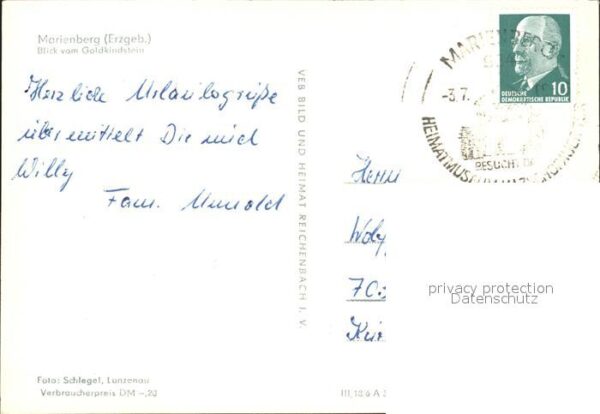 Marienberg (Erzgeb.)
Blick vom Goldkindstein
Herzliche Urlaubsgrüße
übermittelt Dir mich
Willy
Fam.
VEB BILD UND HEIMAT REICHENBACH I. V.
MARIENBERG
-3.7.
HEIMATMUSEUM
BESUCHT
DEUTSCHE
DEMOKRATISCHE REPUBLIK
10
Herrn
privacy protection
Datenschutz
Foto: Schlegel, Lunzenau
Verbraucherpreis DM -,20
III/18/6 A